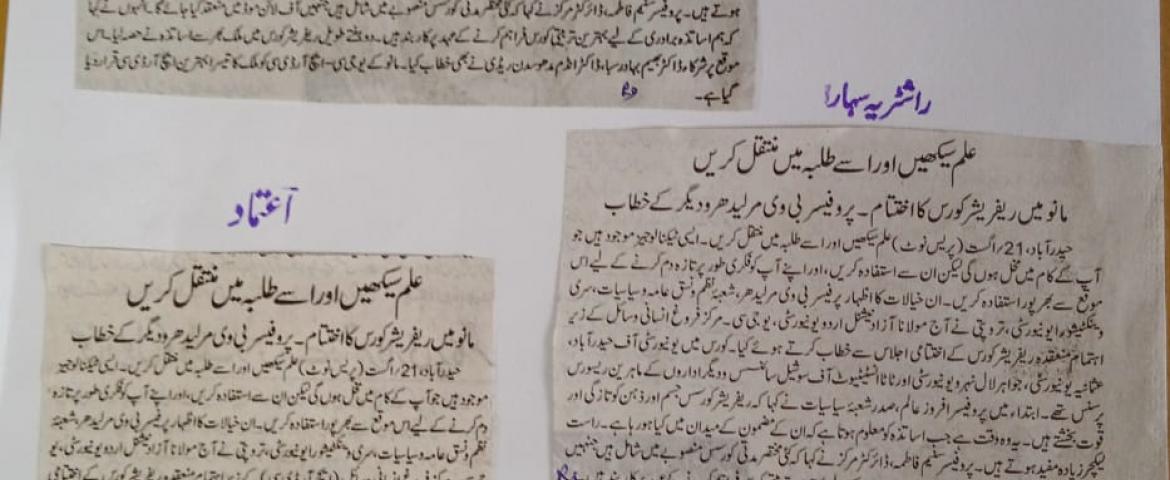 ہوتے ہیں۔ پروفیسر سنیم فاطمہ، ڈائرکٹر مرکز نے کہا کہ کئی مختصر مدتی کورسس منصوبے میں شامل ہیں جنہیں آف لائن موڈ میں منعقد کیا جائے گا۔ انہوں نے کہا
کہ ہم اساتذہ برادری کے لیے بہترین تربیتی کورس فراہم کرنے کے عہد پر کاربند ہیں۔ دو ہفتے طویل ریفریشر کورس میں ملک بھر سے اساتذہ نے حصہ لیا۔ اس
موقع پر شرکاء، ڈاکٹر بھیم بہادر سبا، ڈاکٹر انڈم مدھوسدن ریڈی نے بھی خطاب کیا۔ مانو کے یو جی سی-ایچ آر ڈی سی کو ملک کا تیسرا بہترین ایچ آر ڈی سی قرار دیا
گیا ہے۔
راشٹریہ سہارا
علم سیکھیں اور اسے طلبہ میں منتقل کریں
مانو میں ریفریشر کورس کا اختتام۔ پروفیسر بی وی مرلیدھر و دیگر کے خطاب
حیدرآباد، 21/اگست (پریس نوٹ) علم سیکھیں اور اسے طلبہ میں منتقل کریں۔ ایسی ٹیکنالوجیز موجود ہیں جو
آپ کے کام میں مخل ہوں گی لیکن ان سے استفادہ کریں، اور اپنے آپ کو فکری طور پر تازہ دم کرنے کے لیے اس
موقع سے بھرپور استفادہ کریں۔ ان خیالات کا اظہار پروفیسر بی وی مرلیدھر، شعبۂ نظم و نسق عامہ و سیاسیات، سری
وینکٹیشورا یونیورسٹی، تروپتی نے آج مولانا آزاد نیشنل اردو یونیورسٹی، یو جی سی۔ مرکز فروغ انسانی وسائل کے زیر
اہتمام منعقدہ ریفریشر کورس کے اختتامی اجلاس سے خطاب کرتے ہوئے کیا۔ کورس میں یونیورسٹی آف حیدرآباد،
عثمانیہ یونیورسٹی، جواہر لال نہرو یونیورسٹی اور ٹاٹا انسٹیٹیوٹ آف سوشیل سائنسس و دیگر اداروں کے ماہرین ریسورس
پرسنس تھے۔ ابتداء میں پروفیسر افروز عالم، صدر شعبۂ سیاسیات نے کہا کہ ریفریشر کورسس جسم اور ذہن کو تازگی اور
قوت بخشتے ہیں۔ یہ وہ وقت ہے جب اساتذہ کو معلوم ہوتا ہے کہ ان کے مضمون کے میدان میں کیا ہو رہا ہے۔ راست
لیکچر زیادہ مفید ہوتے ہیں۔ پروفیسر سنیم فاطمہ، ڈائرکٹر مرکز نے کہا کہ کئی مختصر مدتی کورسس منصوبے میں شامل ہیں جنہیں
اعتماد
علم سیکھیں اور اسے طلبہ میں منتقل کریں
مانو میں ریفریشر کورس کا اختتام۔ پروفیسر بی وی مرلیدھر و دیگر کے خطاب
حیدرآباد، 21/اگست (پریس نوٹ) علم سیکھیں اور اسے طلبہ میں منتقل کریں۔ ایسی ٹیکنالوجیز
موجود ہیں جو آپ کے کام میں مخل ہوں گی لیکن ان سے استفادہ کریں، اور اپنے آپ کو فکری طور پر تازہ
دم کرنے کے لیے اس موقع سے بھرپور استفادہ کریں۔ ان خیالات کا اظہار پروفیسر بی وی مرلیدھر، شعبۂ
نظم و نسق عامہ و سیاسیات، سری وینکٹیشورا یونیورسٹی، تروپتی نے آج مولانا آزاد نیشنل اردو یونیورسٹی، یو